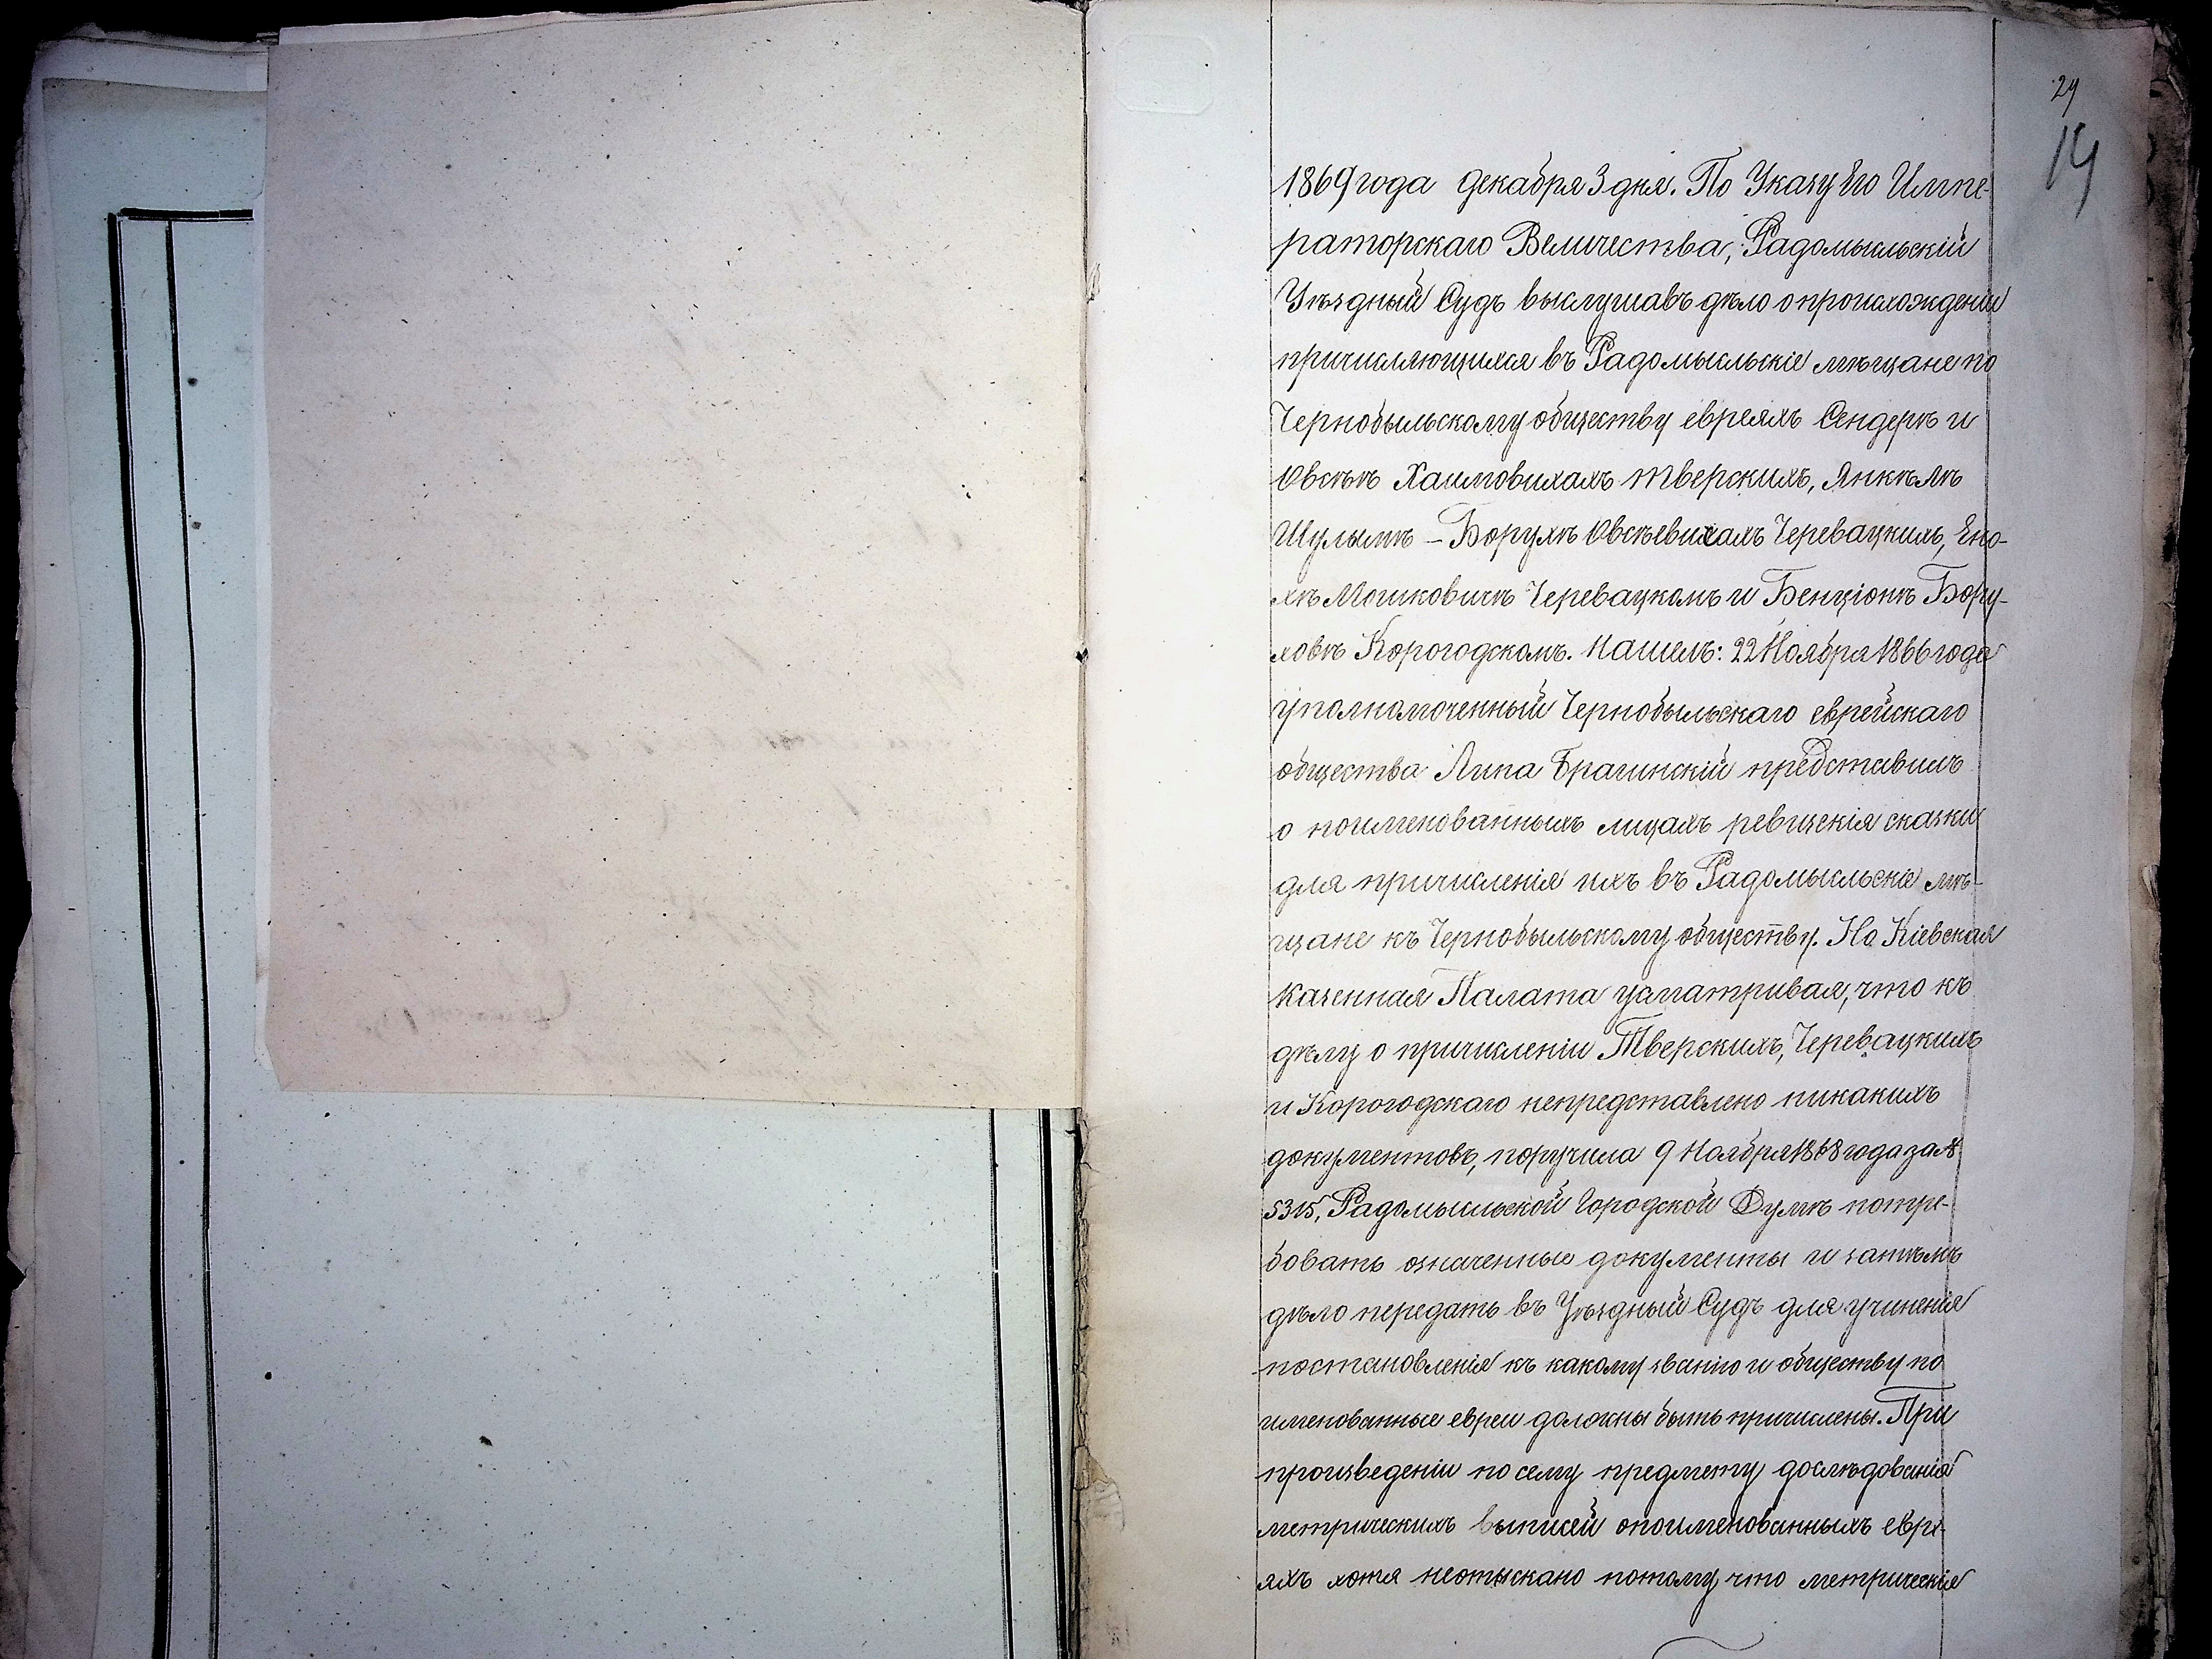 29
14
1869 года декабря 3 дня. По Указу Его Импе-
раторскаго Величества, Радомысльскій
Уѣздный Судъ выслушавъ дѣло о происхожденіи
причисляющихся въ Радомысльскіе мѣщане по
Чернобыльскому обществу евреяхъ Сендерѣ и
Овсѣѣ Хаимовихахъ Тверскихъ, Янкѣлѣ
Шулымѣ - Борухѣ Овсѣевихахъ Черевацкихъ, Ено-
хѣ Мошковичѣ Черевацкомъ и Бенціонѣ Бору-
ховѣ Корогодскомъ. Нашелъ: 22 Ноября 1866 года
уполномоченный Чернобыльскаго еврейскаго
общества Липа Брагинскій представилъ
о поименованныхъ лицахъ ревизскія сказки
для причисленія ихъ въ Радомысльскіе мѣ-
щане къ Чернобыльскому обществу. Но Кіевская
Казенная Палата усматривая, что къ
дѣлу о причисленіи Тверскихъ, Черевацкихъ
и Корогодскаго непредставлено никакихъ
документовъ, поручила 9 Ноября 1868 года за №
5315, Радомысльской Городской Думѣ потре-
бовать означенные документы и затѣмъ
дѣло передать въ Уѣздный Судъ для учиненія
постановленія къ какому званію и обществу по
именованные евреи должны быть причислены. При
произведеніи по сему предмету дослѣдованія
метрическихъ выписей опоименованныхъ евре-
яхъ хотя неотыскано потому, что метрическія